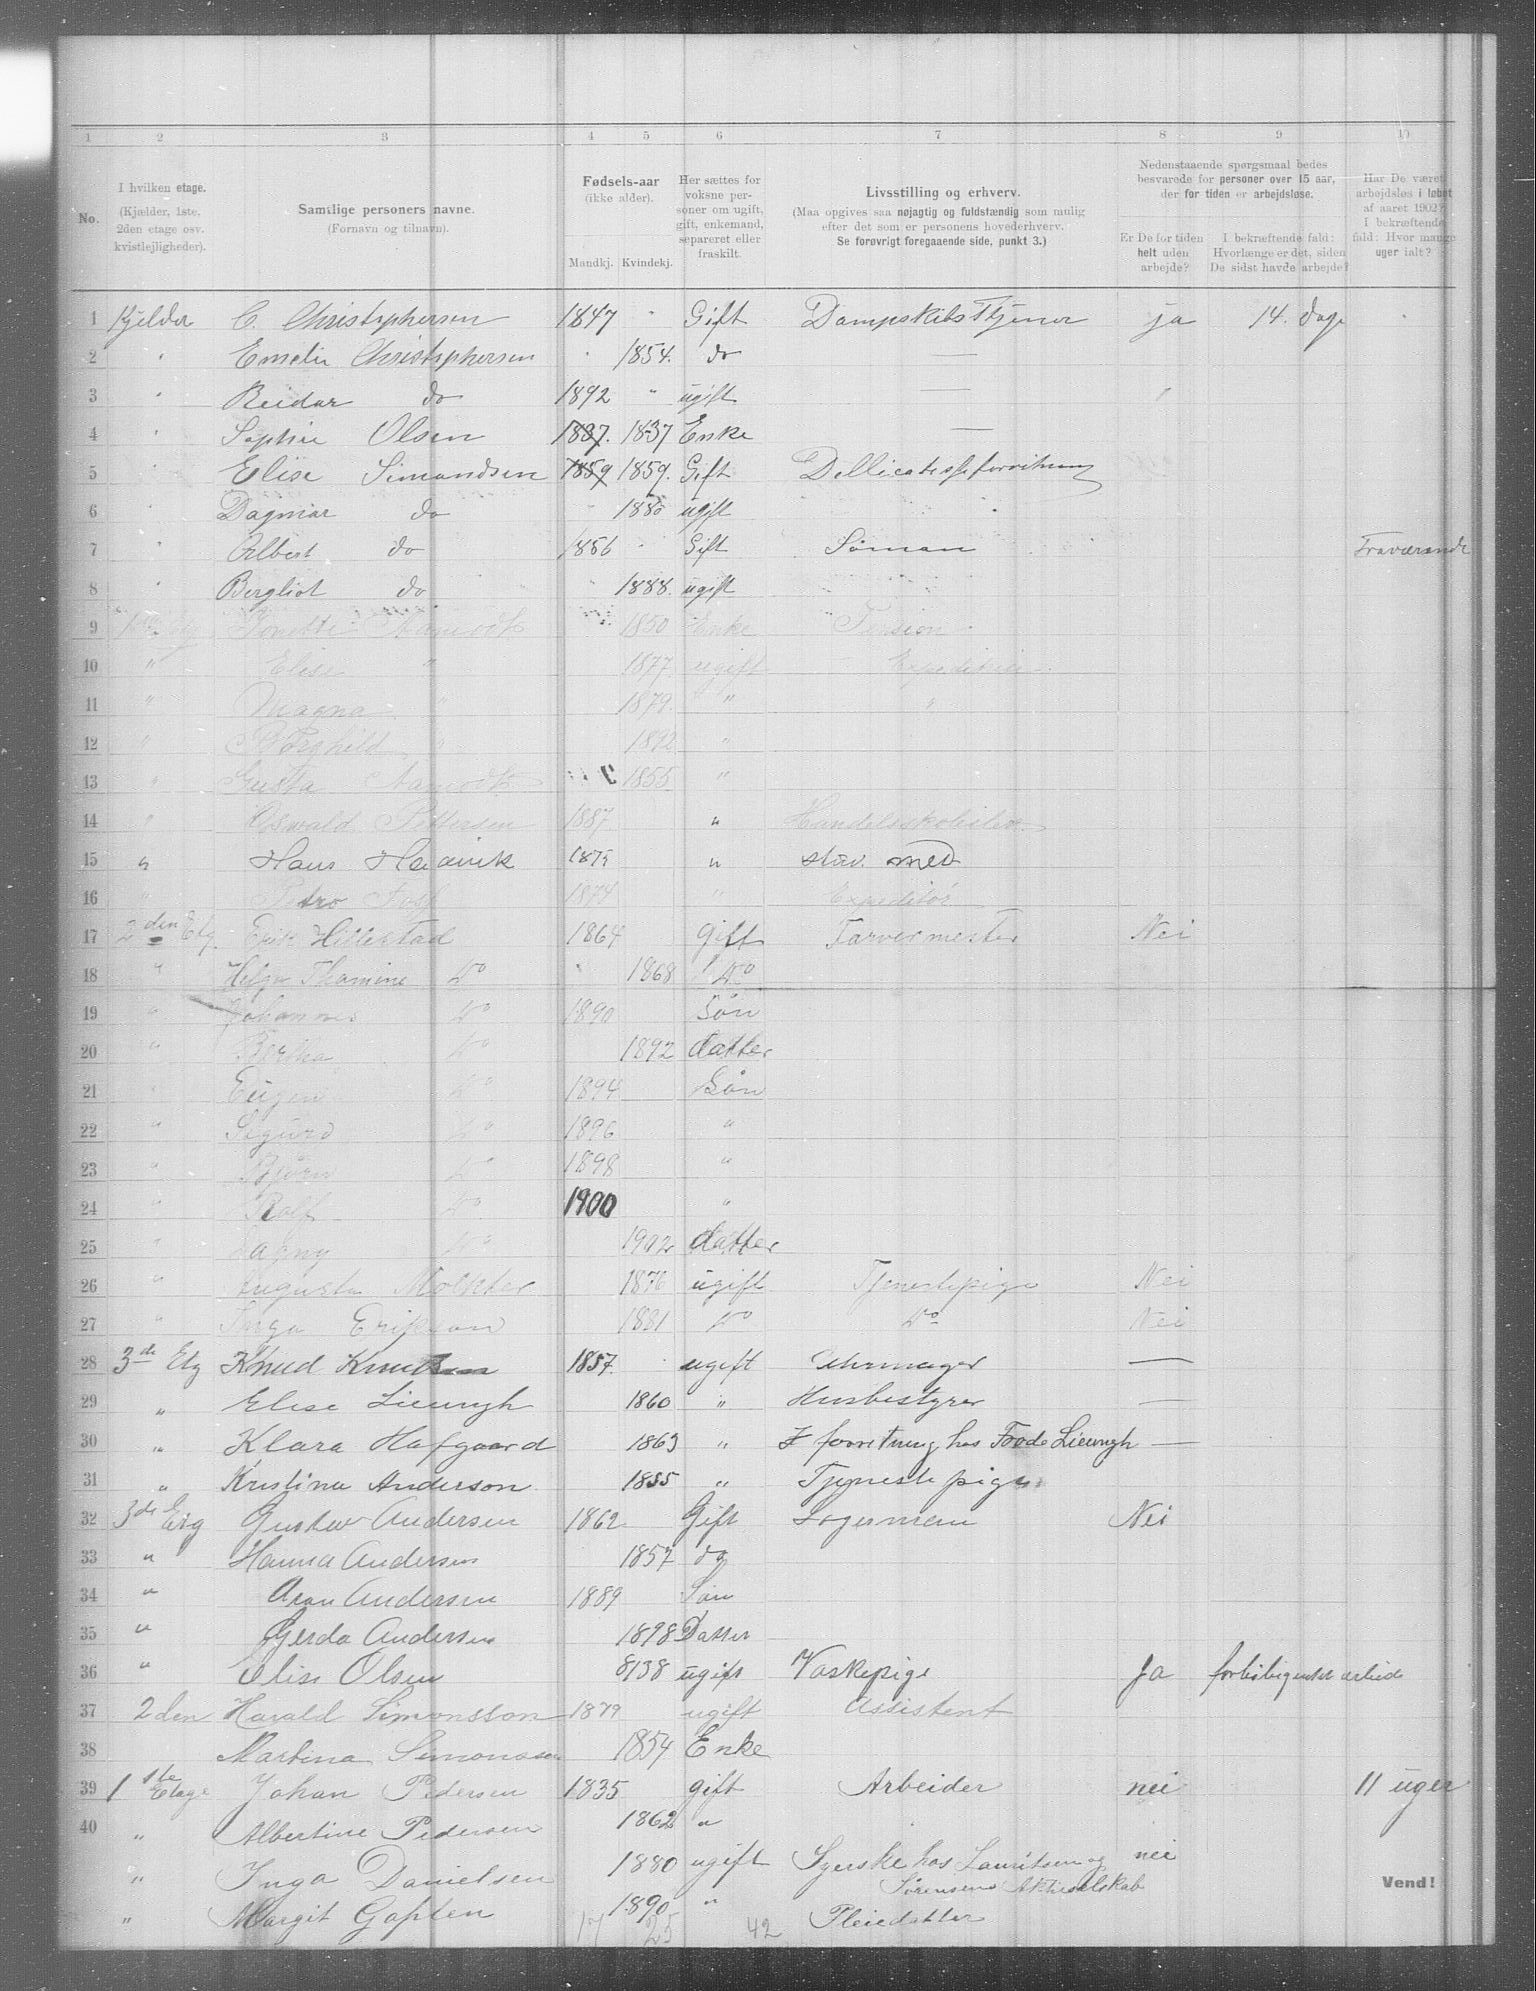 1 2 3 4 5 6 7 8 9 10
No. I hvilken etage. (Kjælder, 1ste, 2den etage osv. kvistlejligheder).
Samtlige personers navne. (Fornavn og tilnavn).
Fødsels-aar (ikke alder). Mandkj. Kvindekj.
Her sættes for voksne personer om ugift, gift, enkemand, separeret eller fraskilt.
Livsstilling og erhverv. (Maa opgives saa nøjagtig og fuldstændig som mulig efter det som er personens hovederhverv. Se forøvrigt foregaaende side, punkt 3.)
Nedenstaaende spørgsmaal bedes besvarede for personer over 15 aar, der for tiden er arbejdsløse.
Er De for tiden helt uden arbejde?
I bekræftende fald: Hvorlænge er det, siden De sidst havde arbejde?
Har De været arbejdsløs i løbet af aaret 1902? I bekræftende fald: Hvor mange uger ialt?
1 Kjelder C. Christophersen 1847 " Gift Dampskibs Tjener ja 14. dage
2 " Emelie Christophersen " 1854. do —
3 " Reidar do 1892 " ugift —
4 " Sophie Olsen 1837. 1837 Enke —
5 " Elise Simondsen 1859 1859. Gift Dellicatesseforretning
6 " Dagmar do 1880 ugift
7 " Albert do 1856 " Gift Söman Fraværende
8 " Bergliot do " 1888. ugift
9 1850 Enke Pension
10 " Elise " 1877 ugift Expeditrice
11 " Magna " 1879. " "
12 " Borghild " 1892 "
13 " Gusta 1855 "
14 " Oswald Pettersen 1887 "
15 " Hans 1875 " stud. med
16 " Petro 1874 " Expeditör
17 2den Etg. Erik Hillestad 1864 Gift Farvermester Nei
18 " Helga Thomine Do 1868 Do
19 " Johannes Do 1890 Sön
20 " Bertha Do 1892 datter
21 " Eugen Do 1894 Sön
22 " Sigurd Do 1896 "
23 " Björn Do 1898 "
24 " Rolf Do 1900 "
25 " Dagny Do 1902 datter
26 " Augusta 1876 ugift Tjenestepige Nei
27 " Inga Erikson 1881 Do Do Nei
28 3de Etg Knud Knutsen 1857. ugift Uhrmager —
29 " Elise Lieungh 1860 " Husbestyrer —
30 " Klara Hafgaard 1863 " I forretning hos Frode Lieungh —
31 " Kristina Anderson 1855 " Tjenestepige
32 3de Etg Gustav Andersen 1862 Gift Lagerman Nei
33 " Hanna Andersen 1857 do
34 " Aron Andersen 1889 Sön
35 " Gerda Andersen 1898 Datter
36 " Elise Olsen 8138 ugift Vaskepige Ja
37 2den Harald Simonsson 1879 ugift Assistent
38 Martina Simonsen 1854 Enke
39 1 1ste Etage Johan Pedersen 1835 gift Arbeider nei 11 uger
40 " Albertine Pedersen 1862 "
" Inga Danielsen 1880 ugift Syerske hos Lauritsen og nei
Sörensens Aktieselskab
" Margit Goplen 1890 " Pleiedatter
17 25 42
Vend!